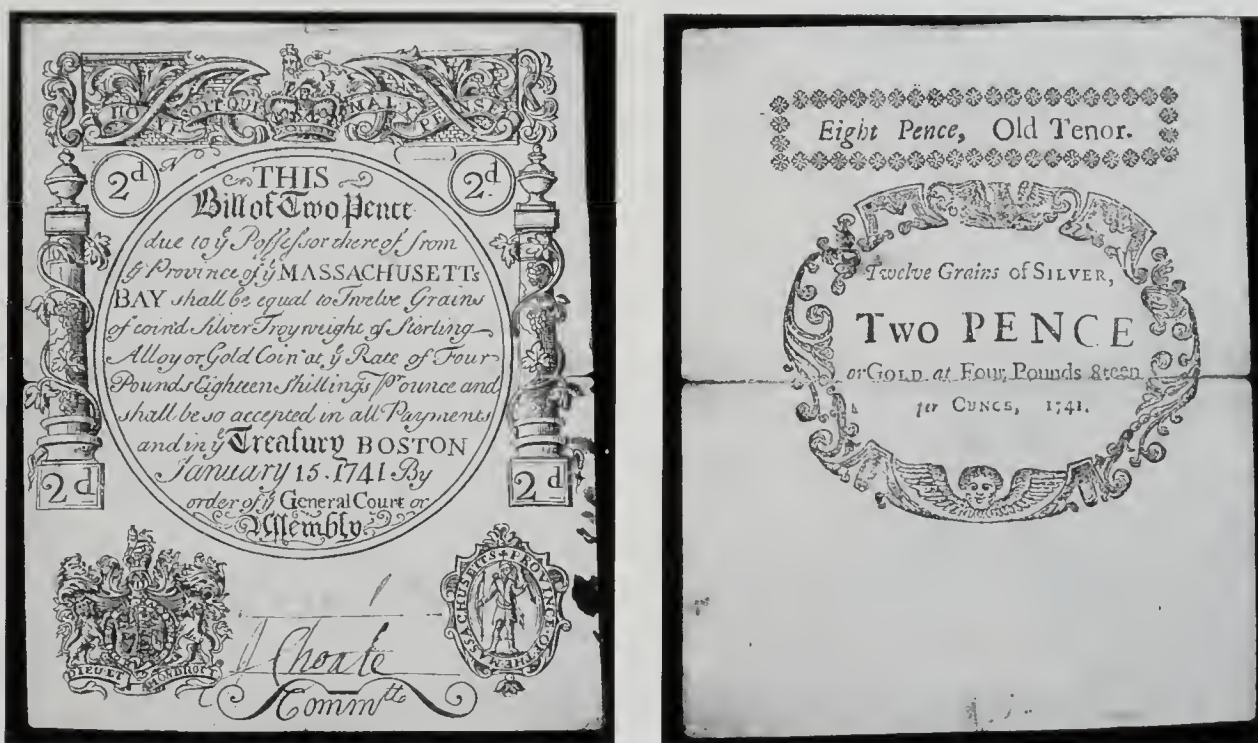 HONI SOIT QUI MAL Y PENSE
2d 2d
THIS
Bill of Two Pence
due to ye Possessor thereof from
ye Province of ye MASSACHUSETTs
BAY shall be equal to Twelve Grains
of coin'd Silver Troy weight of Sterling
Alloy or Gold Coin at ye Rate of Four
Pounds Eighteen Shillings Pr ounce and
shall be so accepted in all Payments
and in ye Treasury BOSTON
January 15. 1741. By
order of ye General Court or
Assembly
2d 2d
DIEU ET MON DROIT
MASSACHUSETTS PROVINCE OF THE
J Choate
Commtte
Eight Pence, Old Tenor.
Twelve Grains of SILVER,
TWO PENCE
or GOLD at Four Pounds 8teen
per OUNCE, 1741.